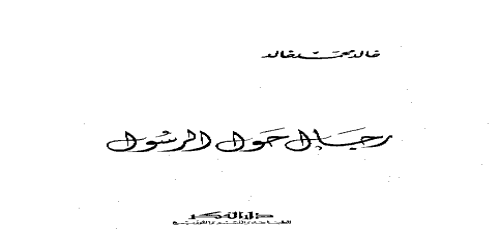 خالد محمد خالد
رجال حول الرسول
دار الفكر
للطباعة والنشر والتوزيع